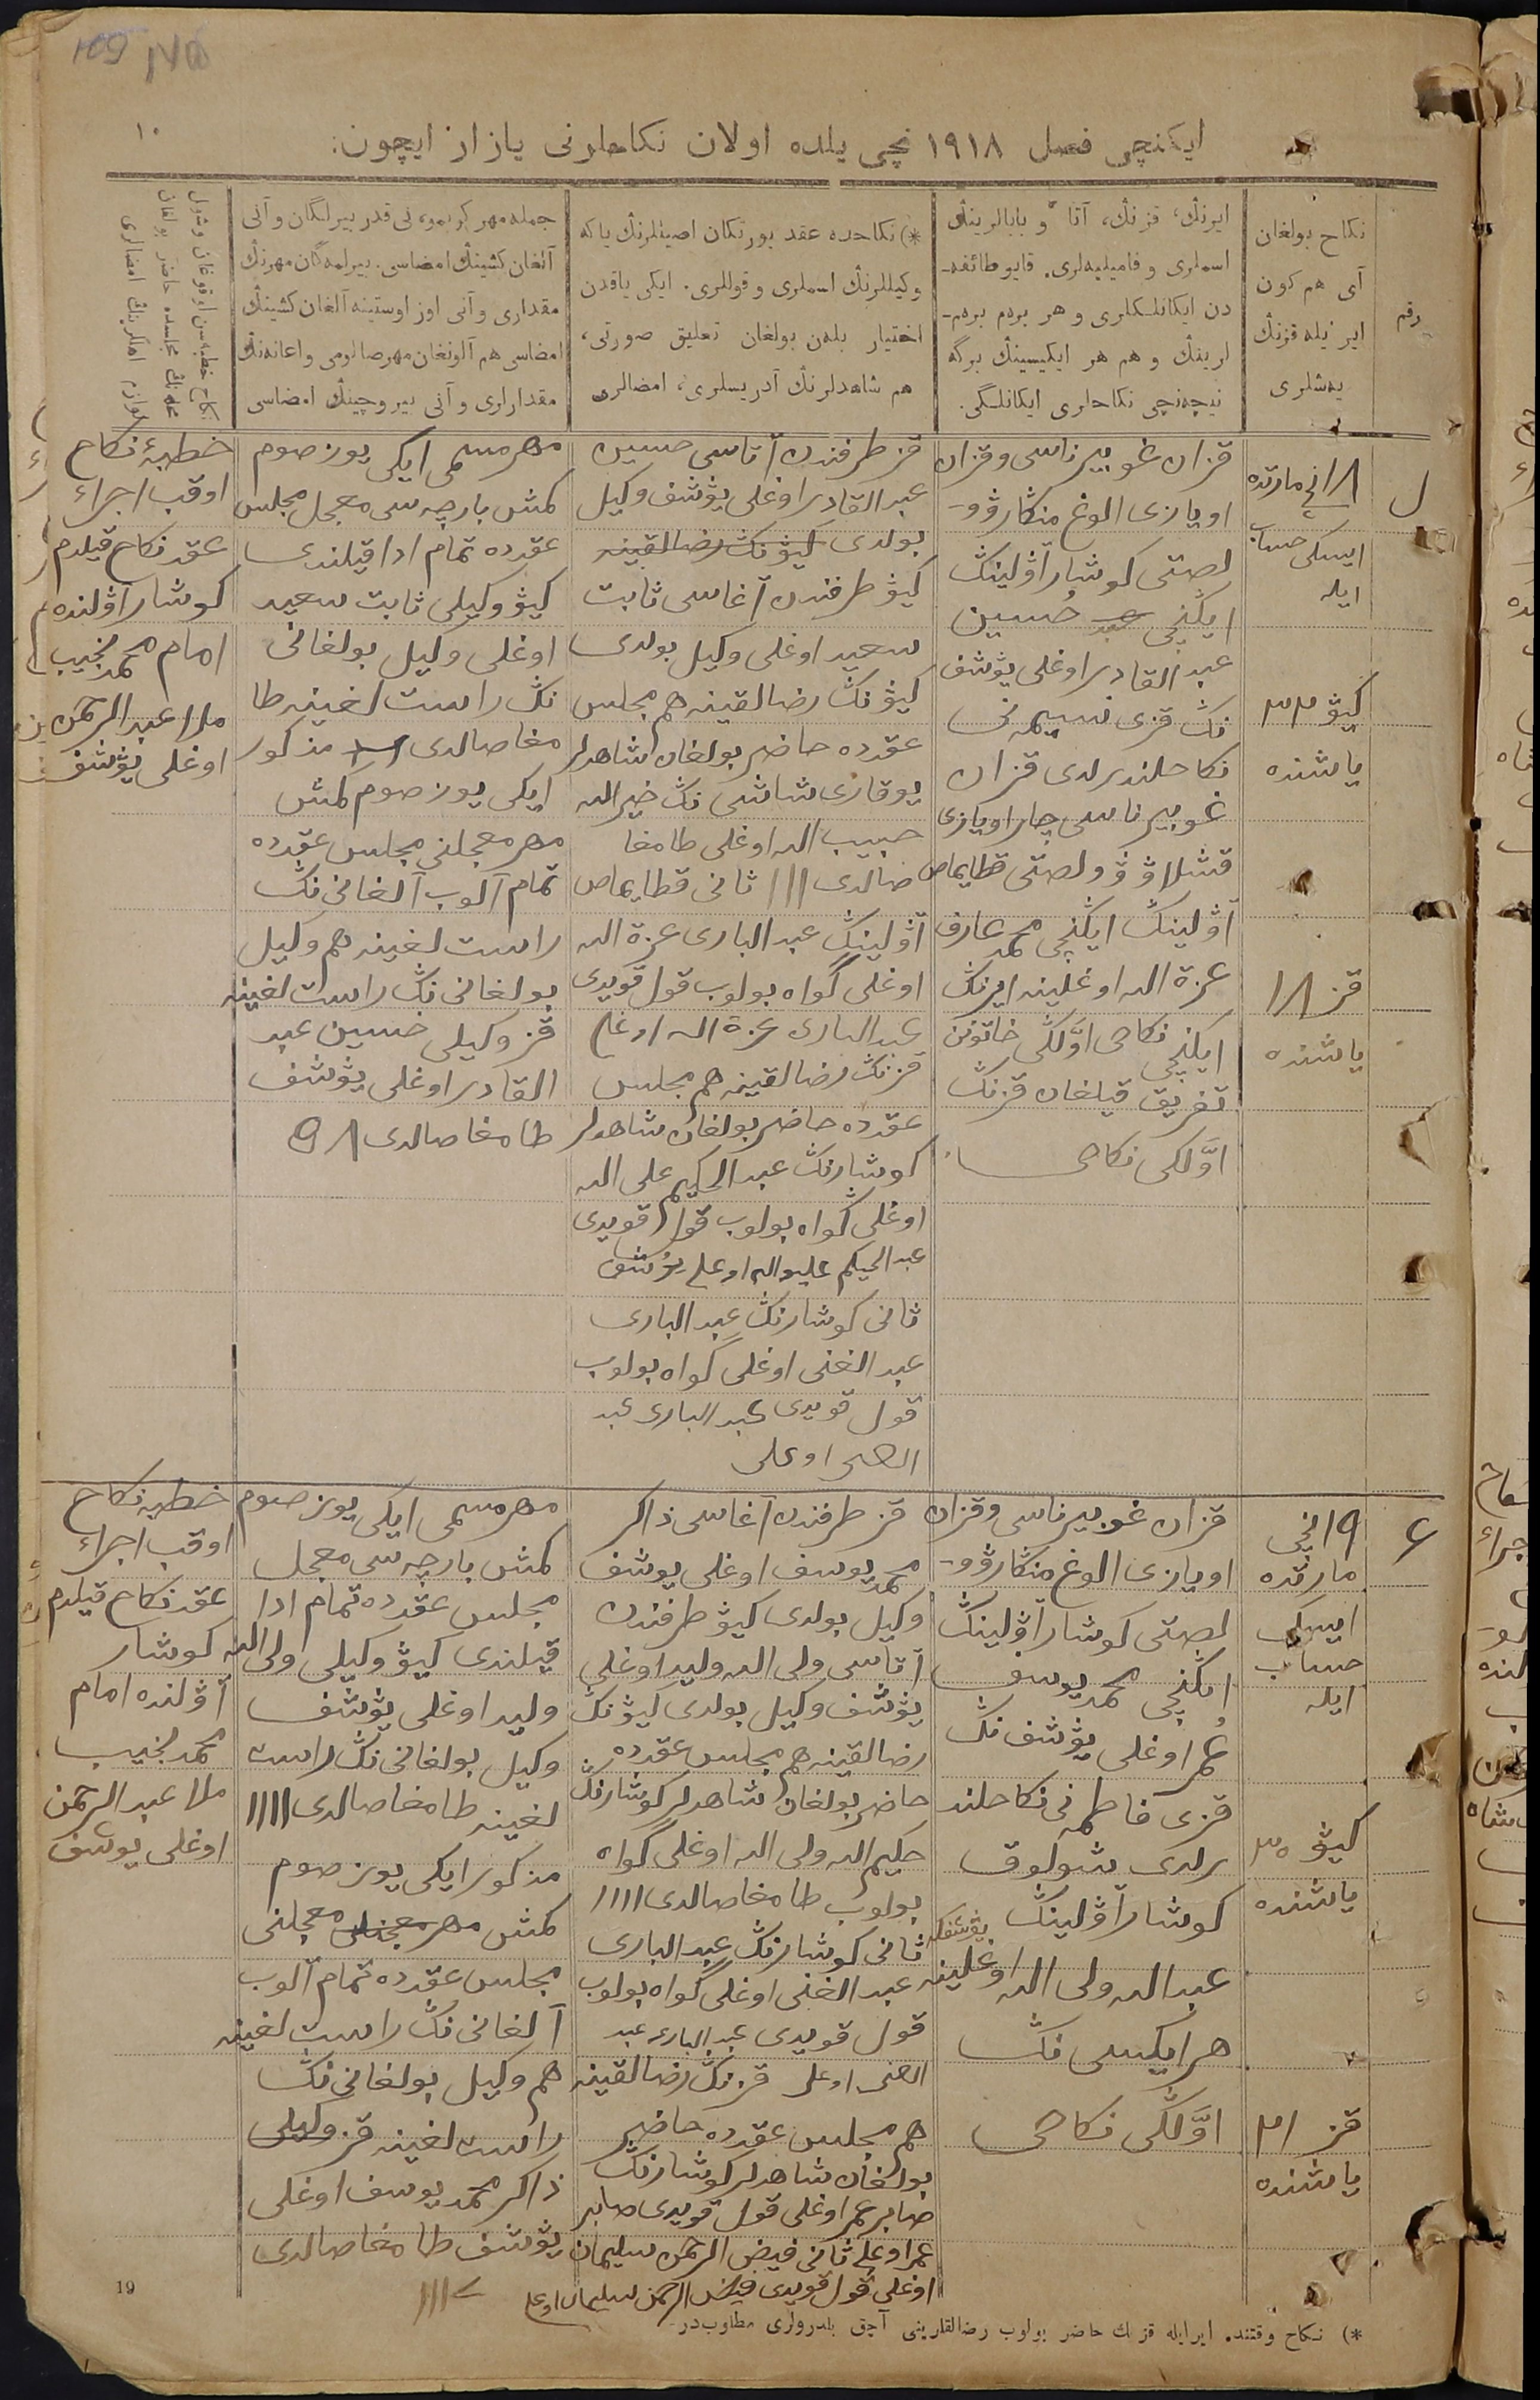 ایکنچی فصل ١٩١٨ نچی یلده اولان نکاحلرنی یازار ایچون:
١٠
رقم
نکاح بولغان
آی هم کون
ایر ٯیله قزنڭ
یەشلری
ایرنڭ، قزنڭ، آتا و بابالرینڭ
اسملری و فامیلیەلری. قایو طائفه‌-
دن ایکانلکلری و هر بردم بردم-
لرینڭ و هم هر ایکیسینڭ برگه
نیچه‌نچی نکاحلری ایکانلگی.
*) نکاحده عقد یورتکان اصیللرنڭ یا که
وکیللرنڭ اسملری و قوللری. ایکی یاقدن
اختیار بلەن بولغان تعلیق صورتی،
هم شاهدلرنڭ آدریسلری، امضالری
جمله مهر کرەمو، نی قدر بیرلگان و آنی
آلغان کشینڭ امضاسی. بیرلمەگان مهرنڭ
مقداری و آنی اوز اوستینه آلغان کشینڭ
امضاسی هم آلونغان مهر صالومی و اعانه‌نڭ
مقدارلری و آنی بیروچینڭ امضاسی
نکاح خطبه‌سن اوقوغان وشول
محله‌نڭ مجلسده حاضر بولغان
لوازم اهللرینڭ امضالری
١
١٨ نچی مارتده
ایسکی حساب
ایله
کیۋ ٣٣
یاشنده
قز ١٨
یاشنده
قزان غوبیرناسی و قزان
اویازی الوغ منگارۋو-
لصتی کوشار آۋلینڭ
ایگنچی حسین
عبد القادر اوغلی یۋشف
نڭ قزی نسیمه نی
نکاحلندرلدی قزان
غوبیرناسی چار اویازی
قشلاۋۋ ولصتی قطایماص
آۋلینڭ ایگنچی محمد عارف
عزة الله اوغلینه ایرنڭ
ایکنچی نکاحی اوّلگی خاتونن
تفریق قیلغان قزنڭ
اوّلگی نکاحی
قز طرفندن آتاسی حسین
عبد القادر اوغلی یۋشف وکیل
بولدی کیۋنڭ رضالقینه
کیۋ طرفندن آغاسی ثابت
سعید اوغلی وکیل بولدی
کیۋنڭ رضالقینه هم مجلس
عقدده حاضر بولغان شاهدلر
یوقاری شاشی نڭ خیر الله
حبیب الله اوغلی طامغا
صالدی ١١١ ثانی قطایماص
آۋلینڭ عبد الباری عزة الله
اوغلی گواه بولوب قول قویدی
عبد الباری عزة الله اوغلی
قزنڭ رضالقینه هم مجلس
عقدده حاضر بولغان شاهدلر
کوشارنڭ عبد الحکیم علی الله
اوغلی گواه بولوب قول قویدی
عبد الحیکم علیوالله اوغلی یۋشف
ثانی کوشارنڭ عبد الباری
عبد الغنی اوغلی گواه بولوب
قول قویدی عبد الباری عبد
الغنی اوغلی
مهر مسمی ایکی یوز صوم
کمش بارچه سی معجل مجلس
عقدده تمام ادا قیلندی
کیۋ وکیلی ثابت سعید
اوغلی وکیل بولغانی
نڭ راست لغینه طا
مغا صالدی مذکور
ایکی یوز صوم کمش
مهر معجلنی مجلس عقدده
تمام آلوب آلغانی نڭ
راست لغینه هم وکیل
بولغانی نڭ راست لغینه
قز وکیلی حسین عبد
القادر اوغلی یۋشف
طامغا صالدی
خطبۀ نکاح
اوقب اجراء
عقد نکاح قیلدم
کوشار آۋلنده
امام محمد نجیب
ملا عبد الرحمن
اوغلی یۋشف
٢
١٩ نچی
مارتده
ایسکی
حساب
ایله
کیۋ ٣٥
یاشنده
قز ٢١
یاشنده
قزان غوبیرناسی و قزان
اویازی الوغ منگارۋو-
لصتی کوشار آۋلینڭ
ایگنچی محمد یوسف
عمر اوغلی یۋشف نڭ
قزی فاطمه نی نکاحلند
رلدی شولوق
کوشار آۋلینڭ
عبد الله ولی الله اوغلینه
هر ایکیسی نڭ
اوّلگی نکاحی
قز طرفندن آغاسی ذاکر
محمد یوسف اوغلی یوشف
وکیل بولدی کیۋ طرفندن
آتاسی ولی الله ولید اوغلی
یۋشف وکیل بولدی کیۋنڭ
رضالقینه هم مجلس عقدده
حاضر بولغان شاهدلر کوشارنڭ
حلیم الله ولی الله اوغلی گواه
بولوب طامغا صالدی ١١١١
ثانی کوشارنڭ عبد الباری
عبد الغنی اوغلی گواه بولوب
قول قویدی عبد الباری عبد
الغنی اوغلی قزنڭ رضالقینه
هم مجلس عقدده حاضر
بولغان شاهدلر کوشارنڭ
صابر عمر اوغلی قول قویدی صابر
عمر اوغلی ثانی فیض الرحمن سلیمان
اوغلی قول قویدی فیض الرحمن سلیمان اوغلی
مهر مسمی ایکی یوز صوم
کمش بارچه سی معجل
مجلس عقدده تمام ادا
قیلندی کیۋ وکیلی ولی الله
ولید اوغلی یۋشف
وکیل بولغانی نڭ راست
لغینه طامغا صالدی ١١١١
مذکور ایکی یوز صوم
کمش مهر معجلنی
مجلس عقدده تمام آلوب
آلغانی نڭ راست لغینه
هم وکیل بولغانی نڭ
راست لغینه قز وکیلی
ذاکر محمد یوسف اوغلی
یۋشف طامغا صالدی
خطبه نکاح
اوقب اجراء
عقد نکاح قیلدم
کوشار
آۋلنده امام
محمد نجیب
ملا عبد الرحمن
اوغلی یوشف
*) نکاح وقتنده ایر ایله قز نڭ حاضر بولوب رضالقلرینی آچق بلدرولری مطلوب‌در.
19